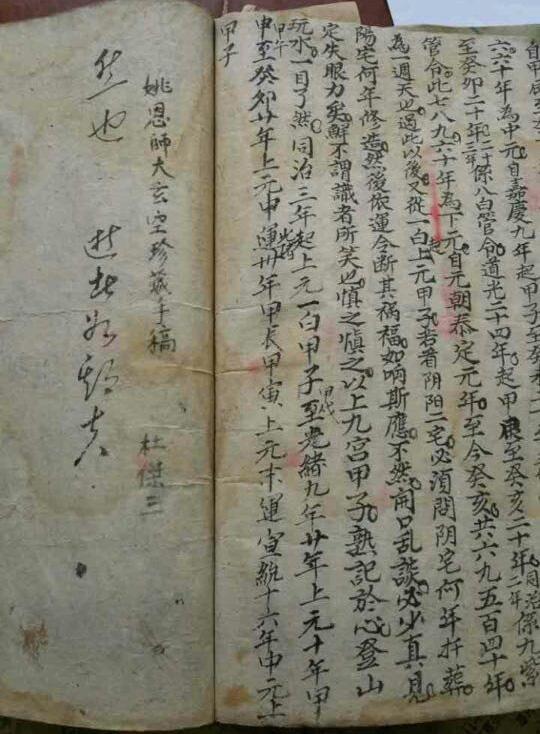 六六十年為中元自嘉慶九年起甲子至癸未二十
至癸卯二十年係八白管令道光二十四年起甲辰至癸亥二十年同治二年係九紫
管令此七八九六十年為下元自元朝泰定元年至今癸亥共六九五百四十年
為一週天也過此以後又從一白上元甲子起若看阴阳二宅必須問阴宅何年扦葬
陽宅何年修造然後依運令断其祸福如响斯應不然開口乱談必少真見
定失眼力矣鮮不謂識者所笑也慎之慎之以上九宮甲子熟記於心登山
玩水一目了然同治三年起上元一白甲子至光緒九年廿年上元十年甲
申至癸卯廿年上元中運卅年甲辰甲寅上元末運宣統十六年中元上
甲子
姚恩師大玄空珍藏手稿
杜傑三